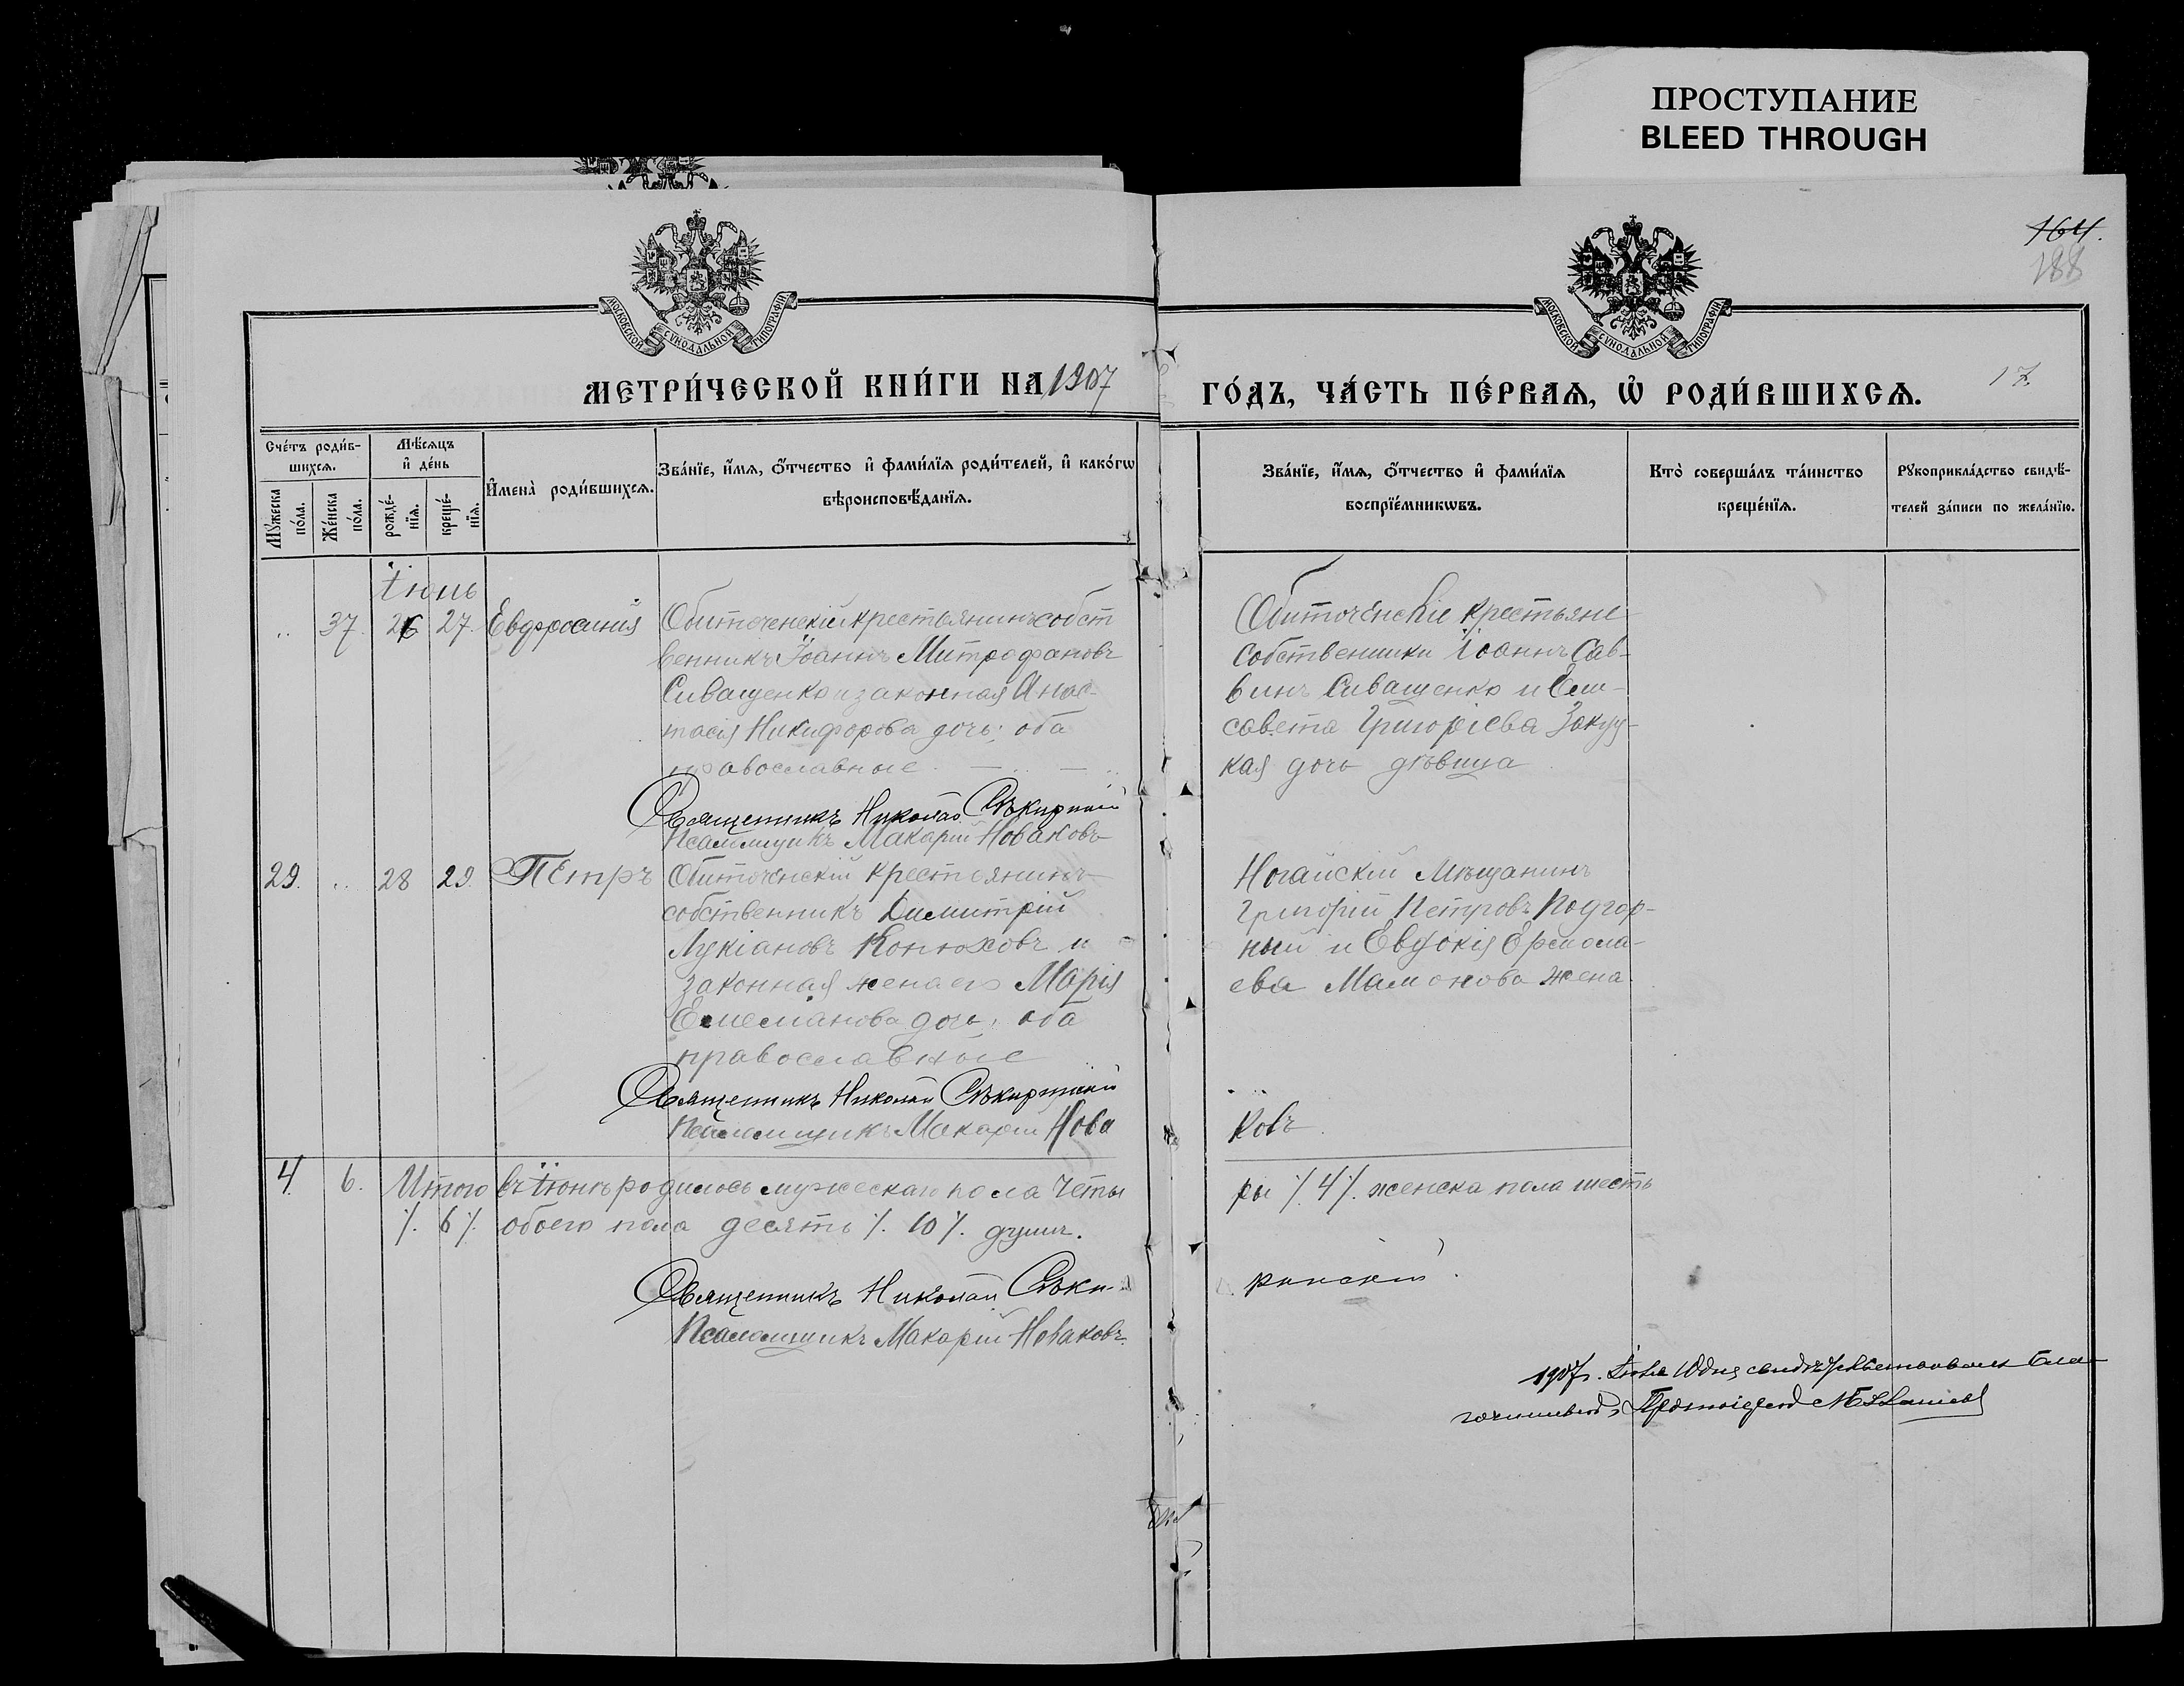 ПРОСТУПАНИЕ
BLEED THROUGH
164.
188
МОСКОВСКОЙ СѴНОДАЛЬНОЙ ТИПОГРАФІИ
МОСКОВСКОЙ СѴНОДАЛЬНОЙ ТИПОГРАФІИ
МЕТРИ́ЧЕСКОЙ КНИ́ГИ НА 1907
ГО́ДЪ, ЧА́СТЬ ПЕ́РВАѦ, Ѡ҆ РОДИ́ВШИХСѦ. 17.
Сче́тъ роди́в-
шихсѧ.
Мꙋ́жеска
по́ла.
Же́нска
по́ла.
Мѣ́сѧцъ
и҆ де́нь
рожде́-
нїѧ.
креще́-
нїѧ.
И҆мена̀ роди́вшихсѧ.
Зва́нїе, и҆́мѧ, ѻ҆́тчество и҆ фами́лїѧ роди́телей, и҆ како́гѡ
вѣроисповѣ́данїѧ.
Зва́нїе, и҆́мѧ, ѻ҆́тчество и҆ фами́лїѧ
воспрїе́мникѡвъ.
Кто̀ соверша́лъ та́инство
креще́нїѧ.
Рꙋкоприкла́дство свидѣ́-
телей за́писи по жела́нїю.
Іюнь
.. 37. 26 27. Евфросинія Обиточенскій крестьянинъ собст
венникъ Іоаннъ Митрофановъ
Сиващенко и законная Анас-
тасія Никифорова дочь; оба
православные.
Священникъ Николай Сѣкиринскій
Псаломщикъ Макарій Новаковъ
Обиточенскіе крестьяне
собственники Іоаннъ Сав-
винъ Сиващенко и Ели-
савета Григоріева
кая дочь дѣвица
29. .. 28 29. Петръ Обиточенскій крестьянинъ
собственникъ Димитрій
Лукіановъ Конюховъ и
законная жена его Марія
Емеліанова дочь, оба
православные
Священникъ Николай Сѣкиринскій
Псаломщикъ Макарій Нова
ковъ.
Ногайскій мѣщанинъ
Григорій Петровъ Подгор-
ный и Евдокія Ермола-
ева Мамонова жена.
4. 6. Итого въ Іюнѣ родилось мужескаго пола четы
ры /. 4 /. женска пола шесть
/. 6 /. обоего пола десять /. 10 /. душъ.
Священникъ Николай Сѣки-
ринскій.
Псаломщикъ Макарій Новаковъ.
1907 г. Іюля 10 дня свидѣтельствовалъ Бла-
гочинный, Протоіерей